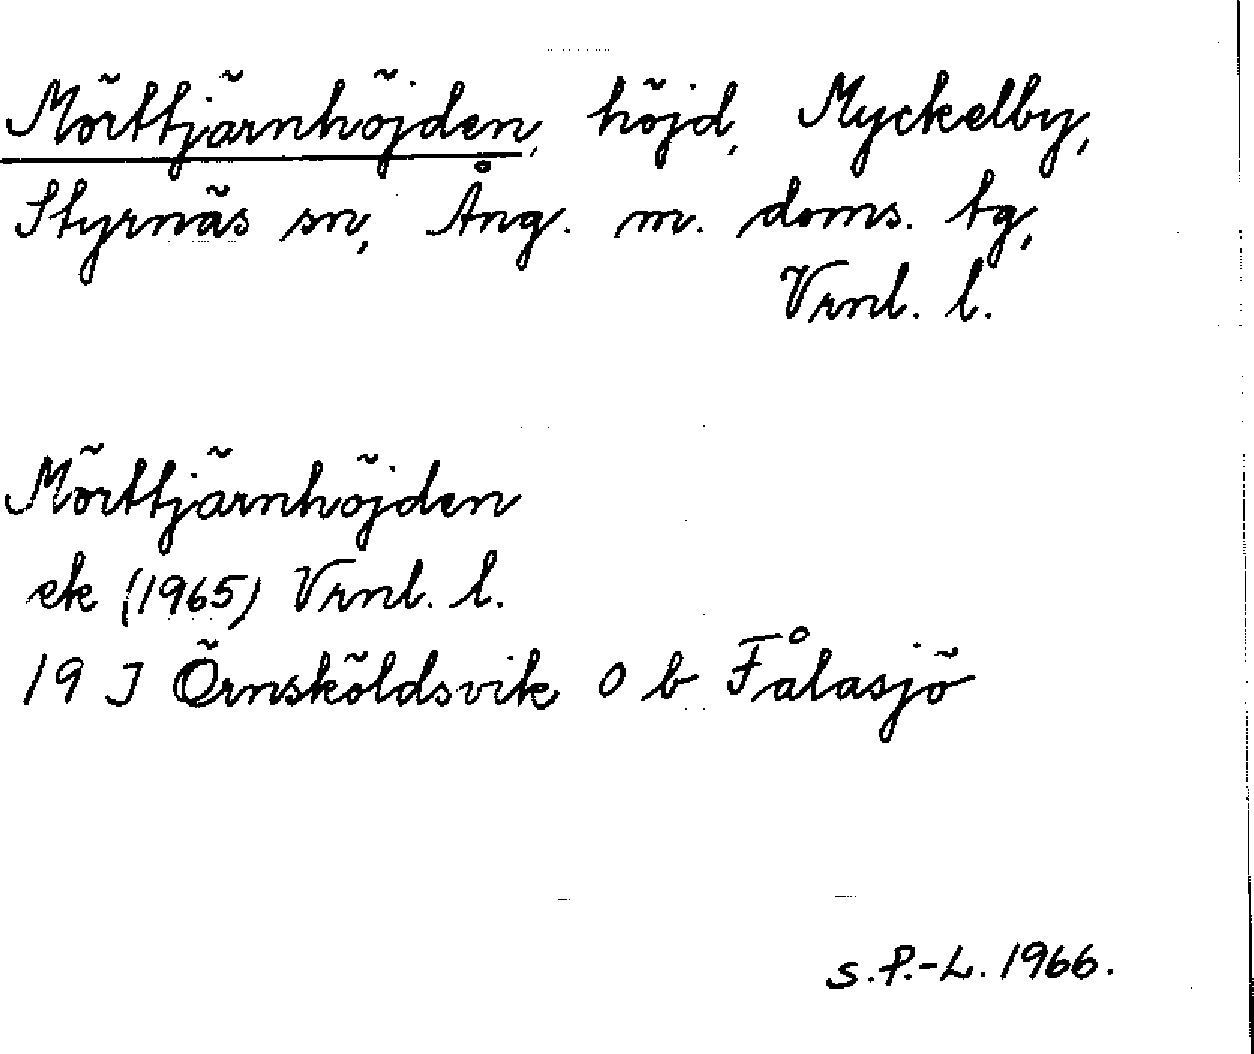 Mörttjärnhöjden, höjd, Myckelby,
Styrnäs sn, Ång. m. doms. tg,
Vrnl. l.
Mörttjärnhöjden
ek (1965) Vrnl. l.
19 J Örnsköldsvik 0 b Fålasjö
S.P.-L. 1966.